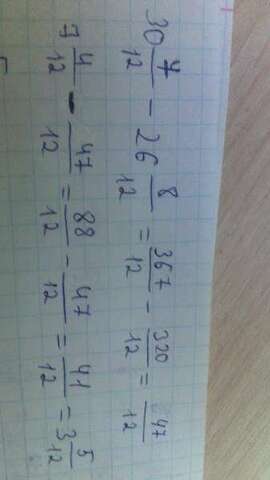 30 7/12 - 26 8/12 = 367/12 - 320/12 = 47/12
7 4/12 - 47/12 = 88/12 - 47/12 = 41/12 = 3 5/12